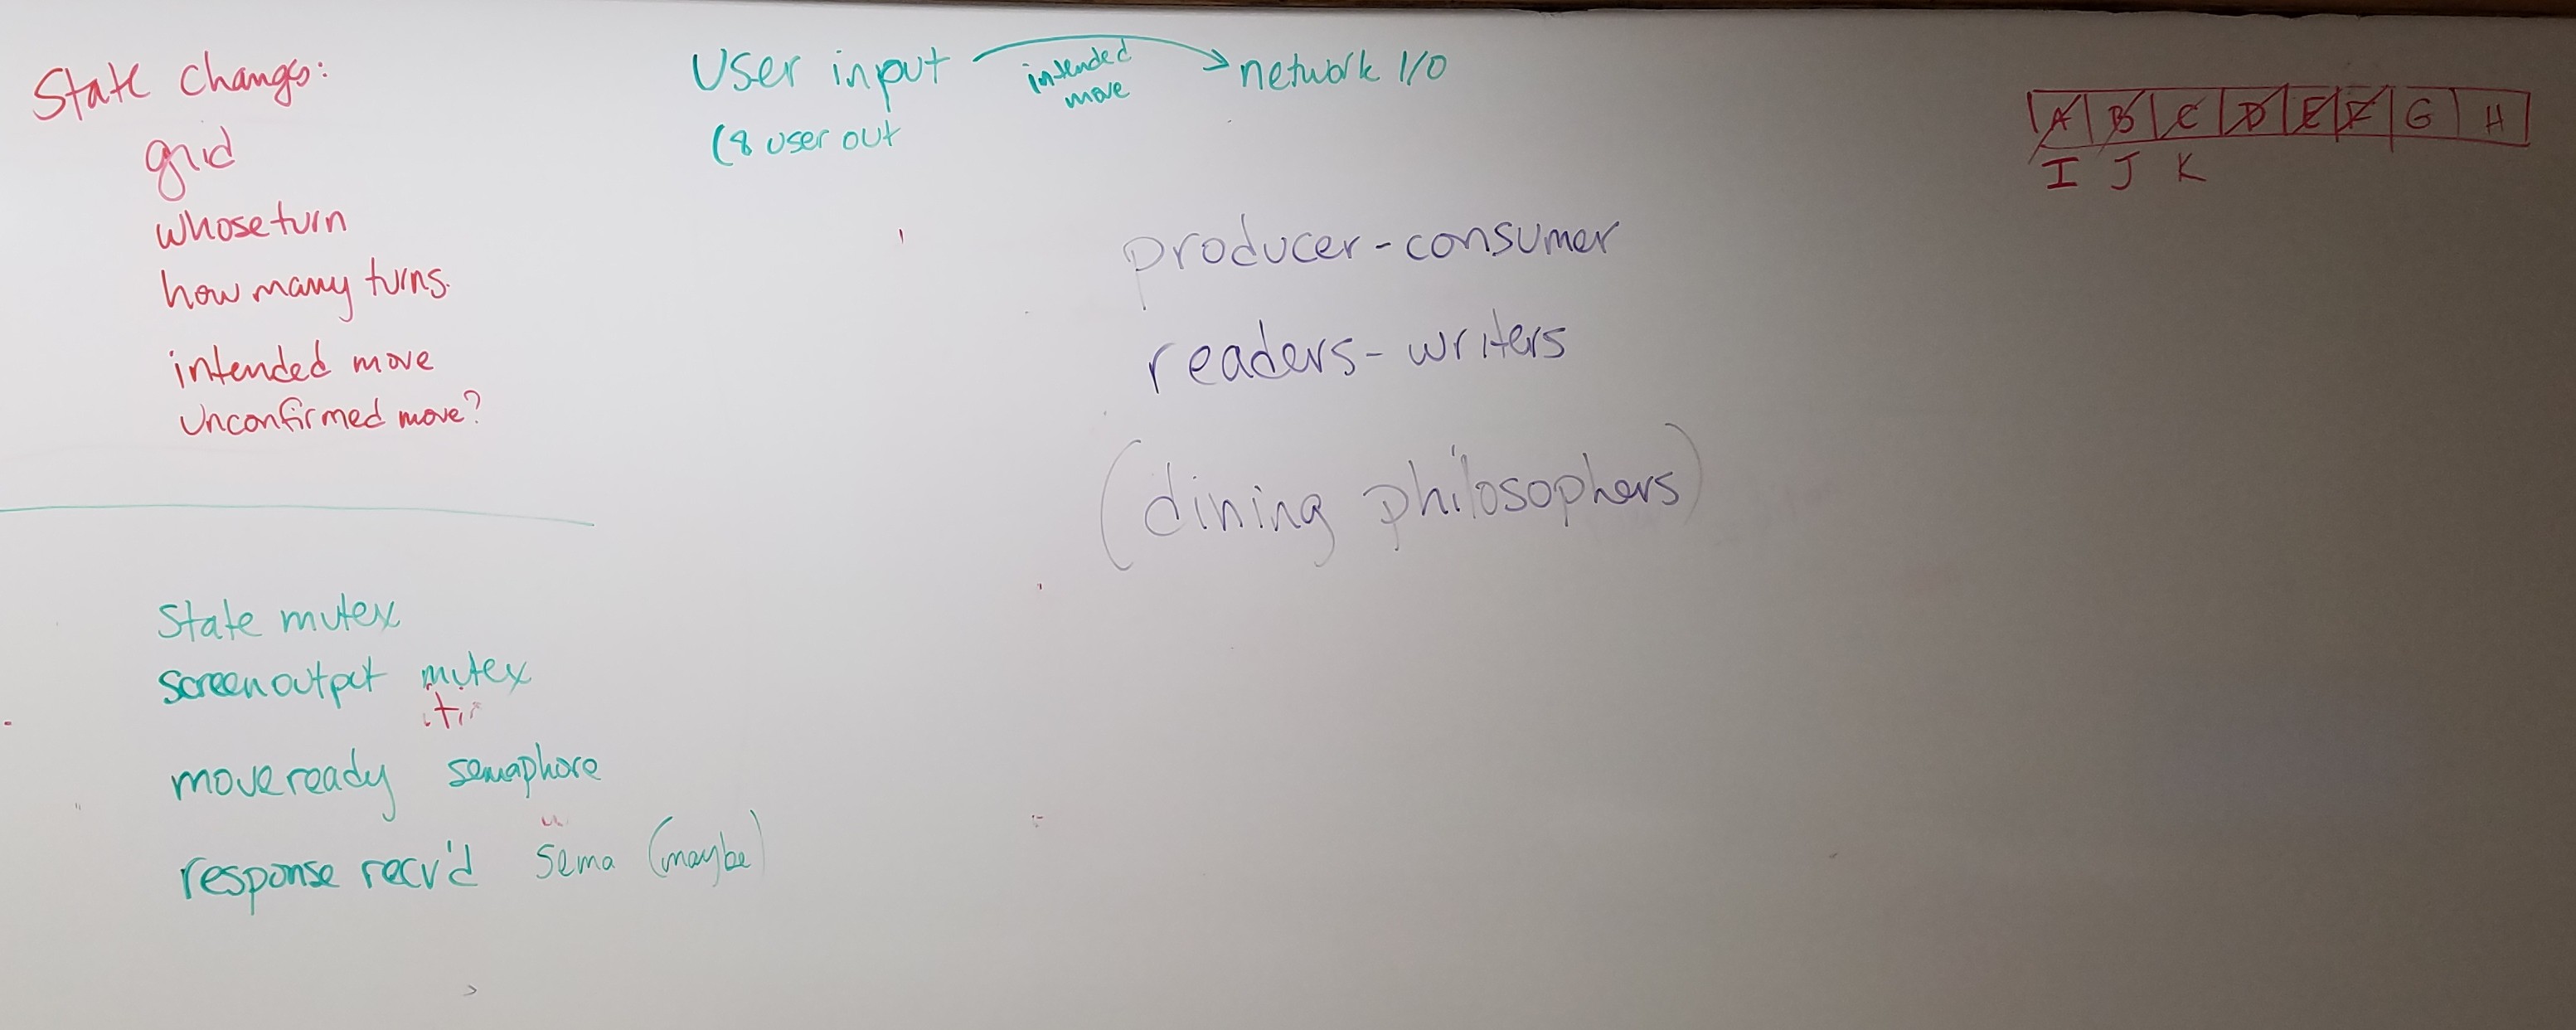 State changes:
grid
whose turn
how many turns.
intended move
Unconfirmed move?
State mutex
screen output mutex
move ready semaphore
response recv'd sema (maybe)
User input
intended
move
network I/O
(& user out
producer-consumer
readers-writers
(dining philosophers)
A B C D E F G H
I J K